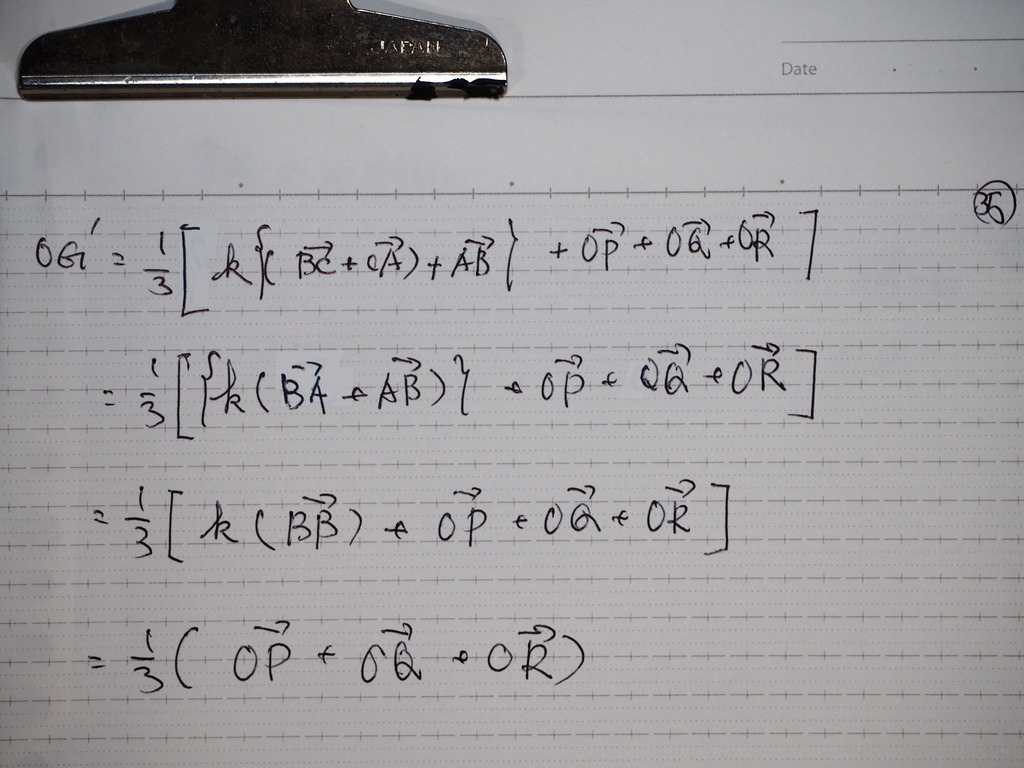 JAPAN
Date
36
OG' = 1/3 [ k{(BC→ + CA→) + AB→} + OP→ + OQ→ + OR→ ]
= 1/3 [ {k(BA→ + AB→)} + OP→ + OQ→ + OR→ ]
= 1/3 [ k(BB→) + OP→ + OQ→ + OR→ ]
= 1/3 ( OP→ + OQ→ + OR→ )